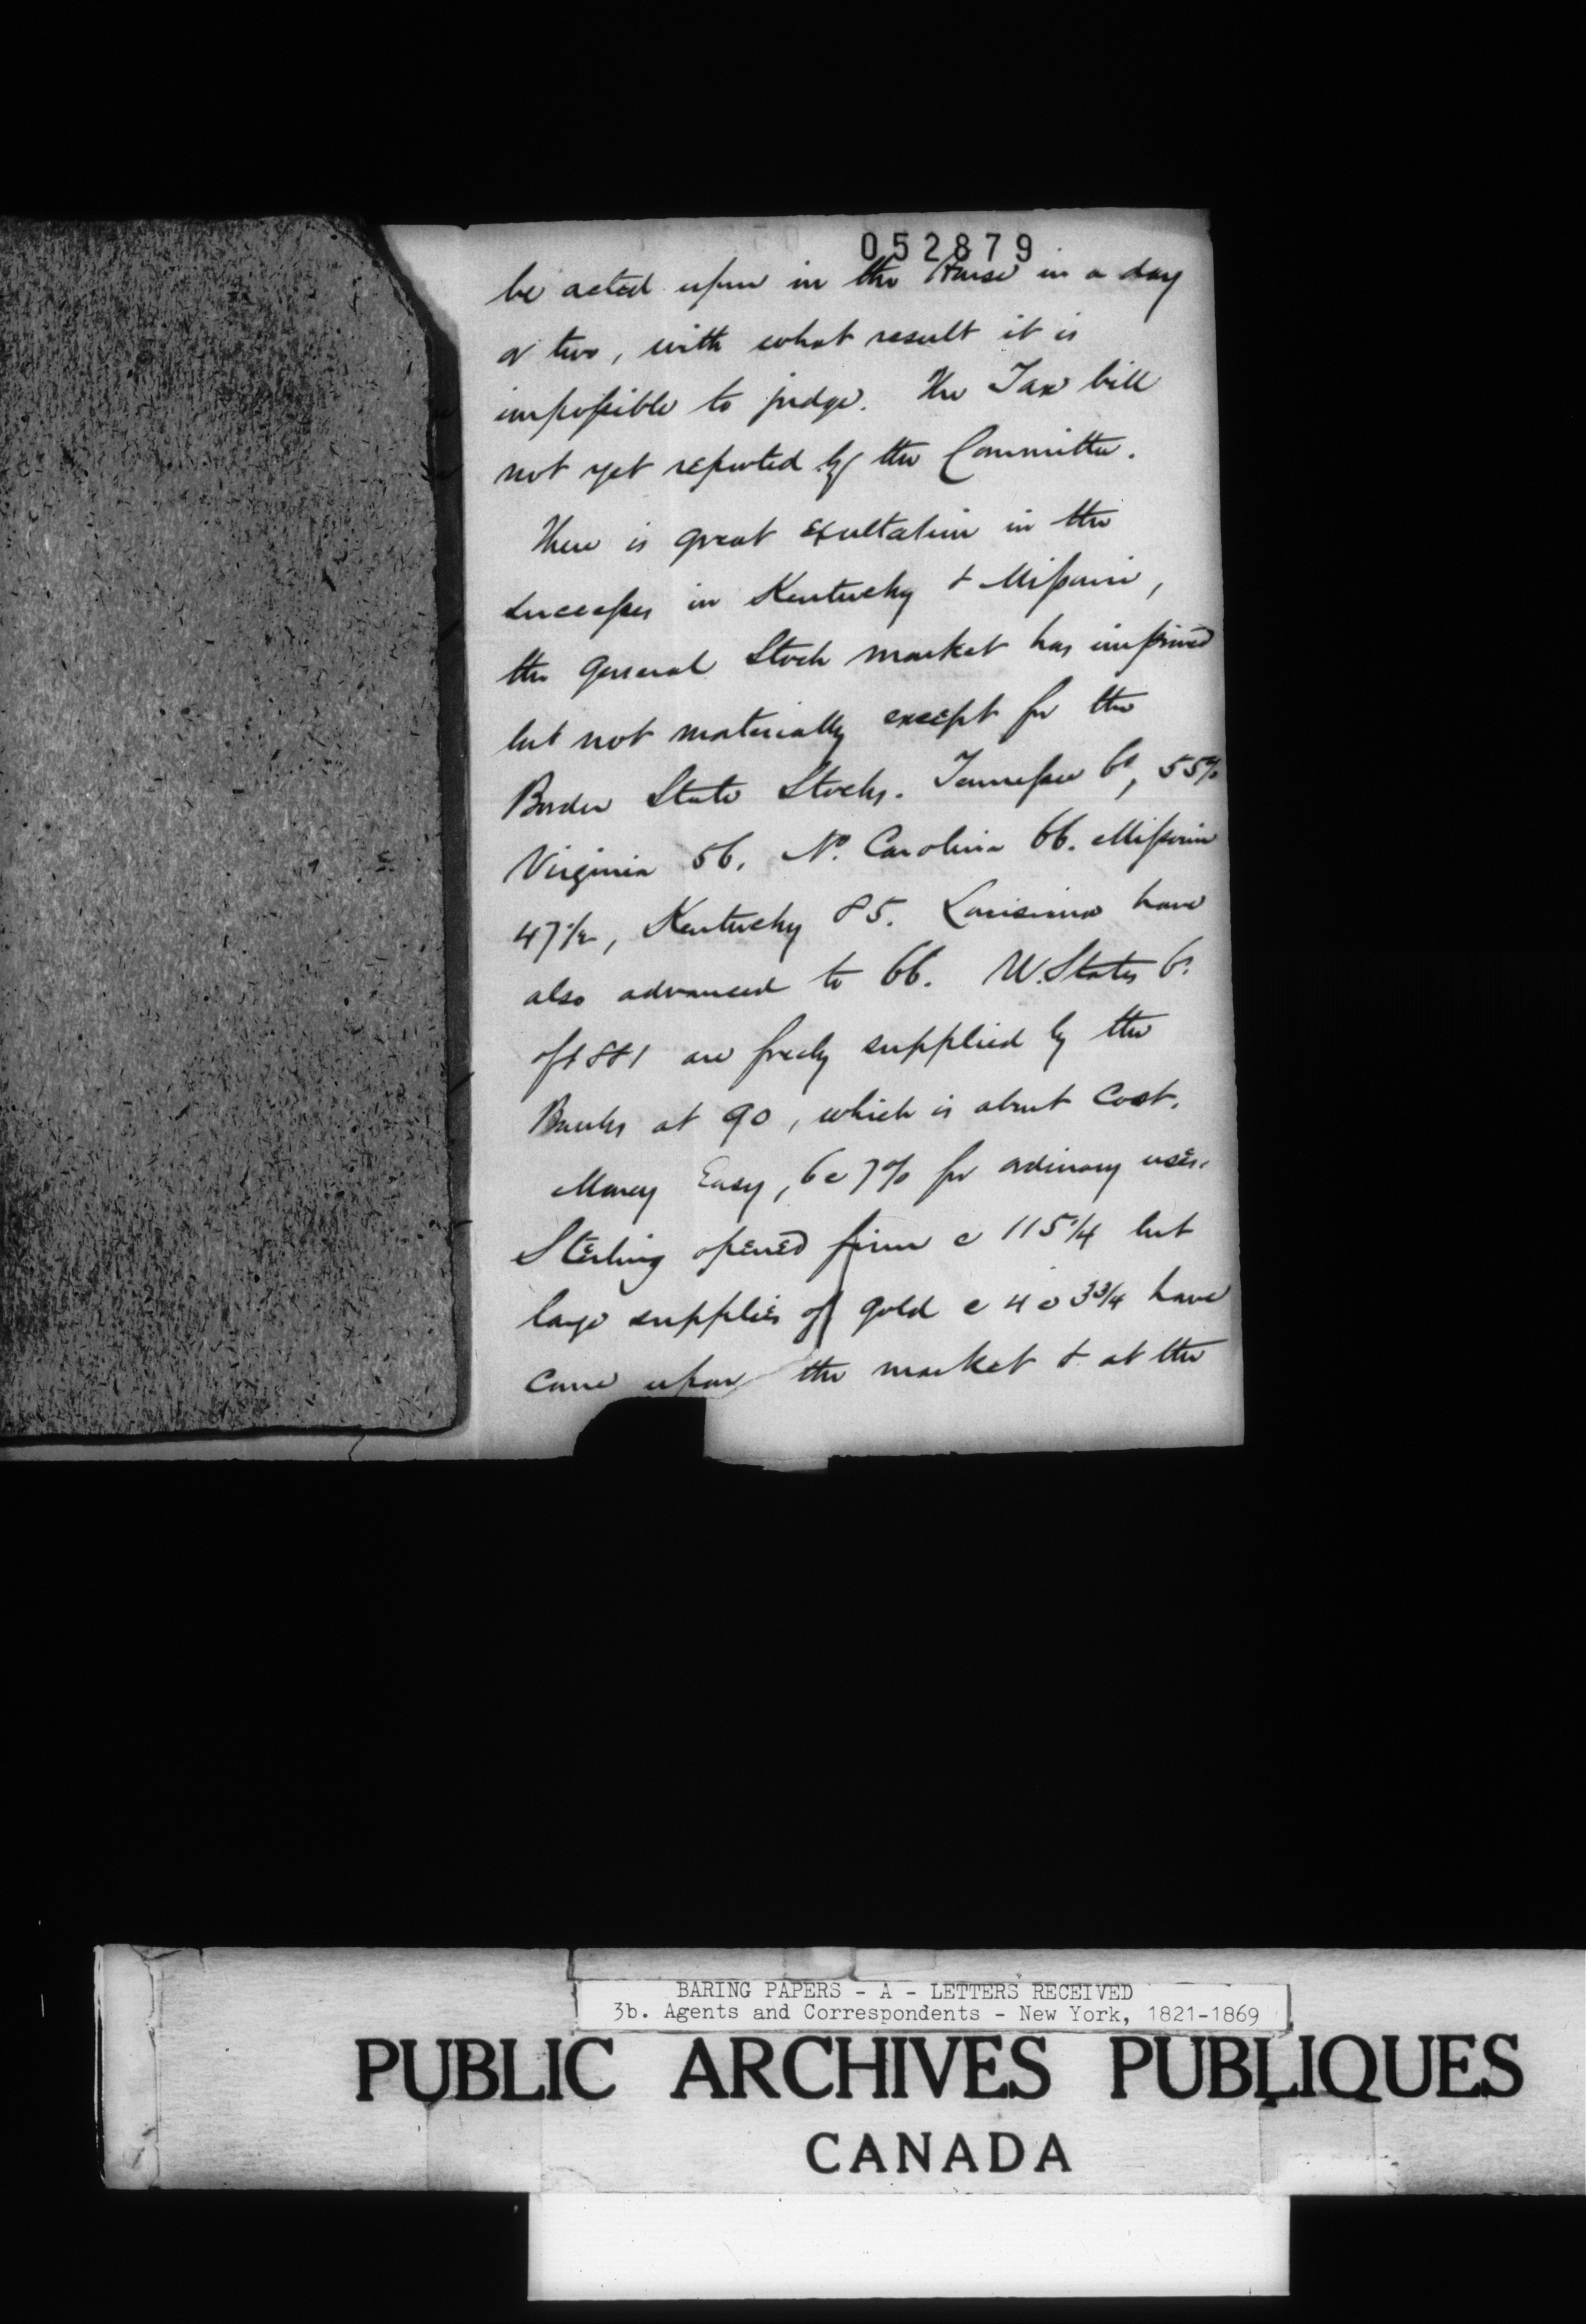 052879
be acted upon in the House in a day
or two, with what result it is
impossible to judge. The Tax bill
not yet reported by the Committee.
There is great exultation in the
successes in Kentucky & Missouri,
the general Stock market has improved
but not materially except for the
Border State Stocks. Tennessee 6s, 55%
Virginia 56, No. Carolina 66. Missouri
47 1/2, Kentucky 85. Louisiana have
also advanced to 66. U. States 6s
of 1881 are freely supplied by the
Banks at 90, which is about Cost.
Money Easy, 6 @ 7% for ordinary uses.
Sterling opened firm @ 115 1/4 but
large supplies of gold @ 4 @ 3 3/4 have
come upon the market & at the
BARING PAPERS - A - LETTERS RECEIVED
3b. Agents and Correspondents - New York, 1821-1869
PUBLIC ARCHIVES PUBLIQUES
CANADA